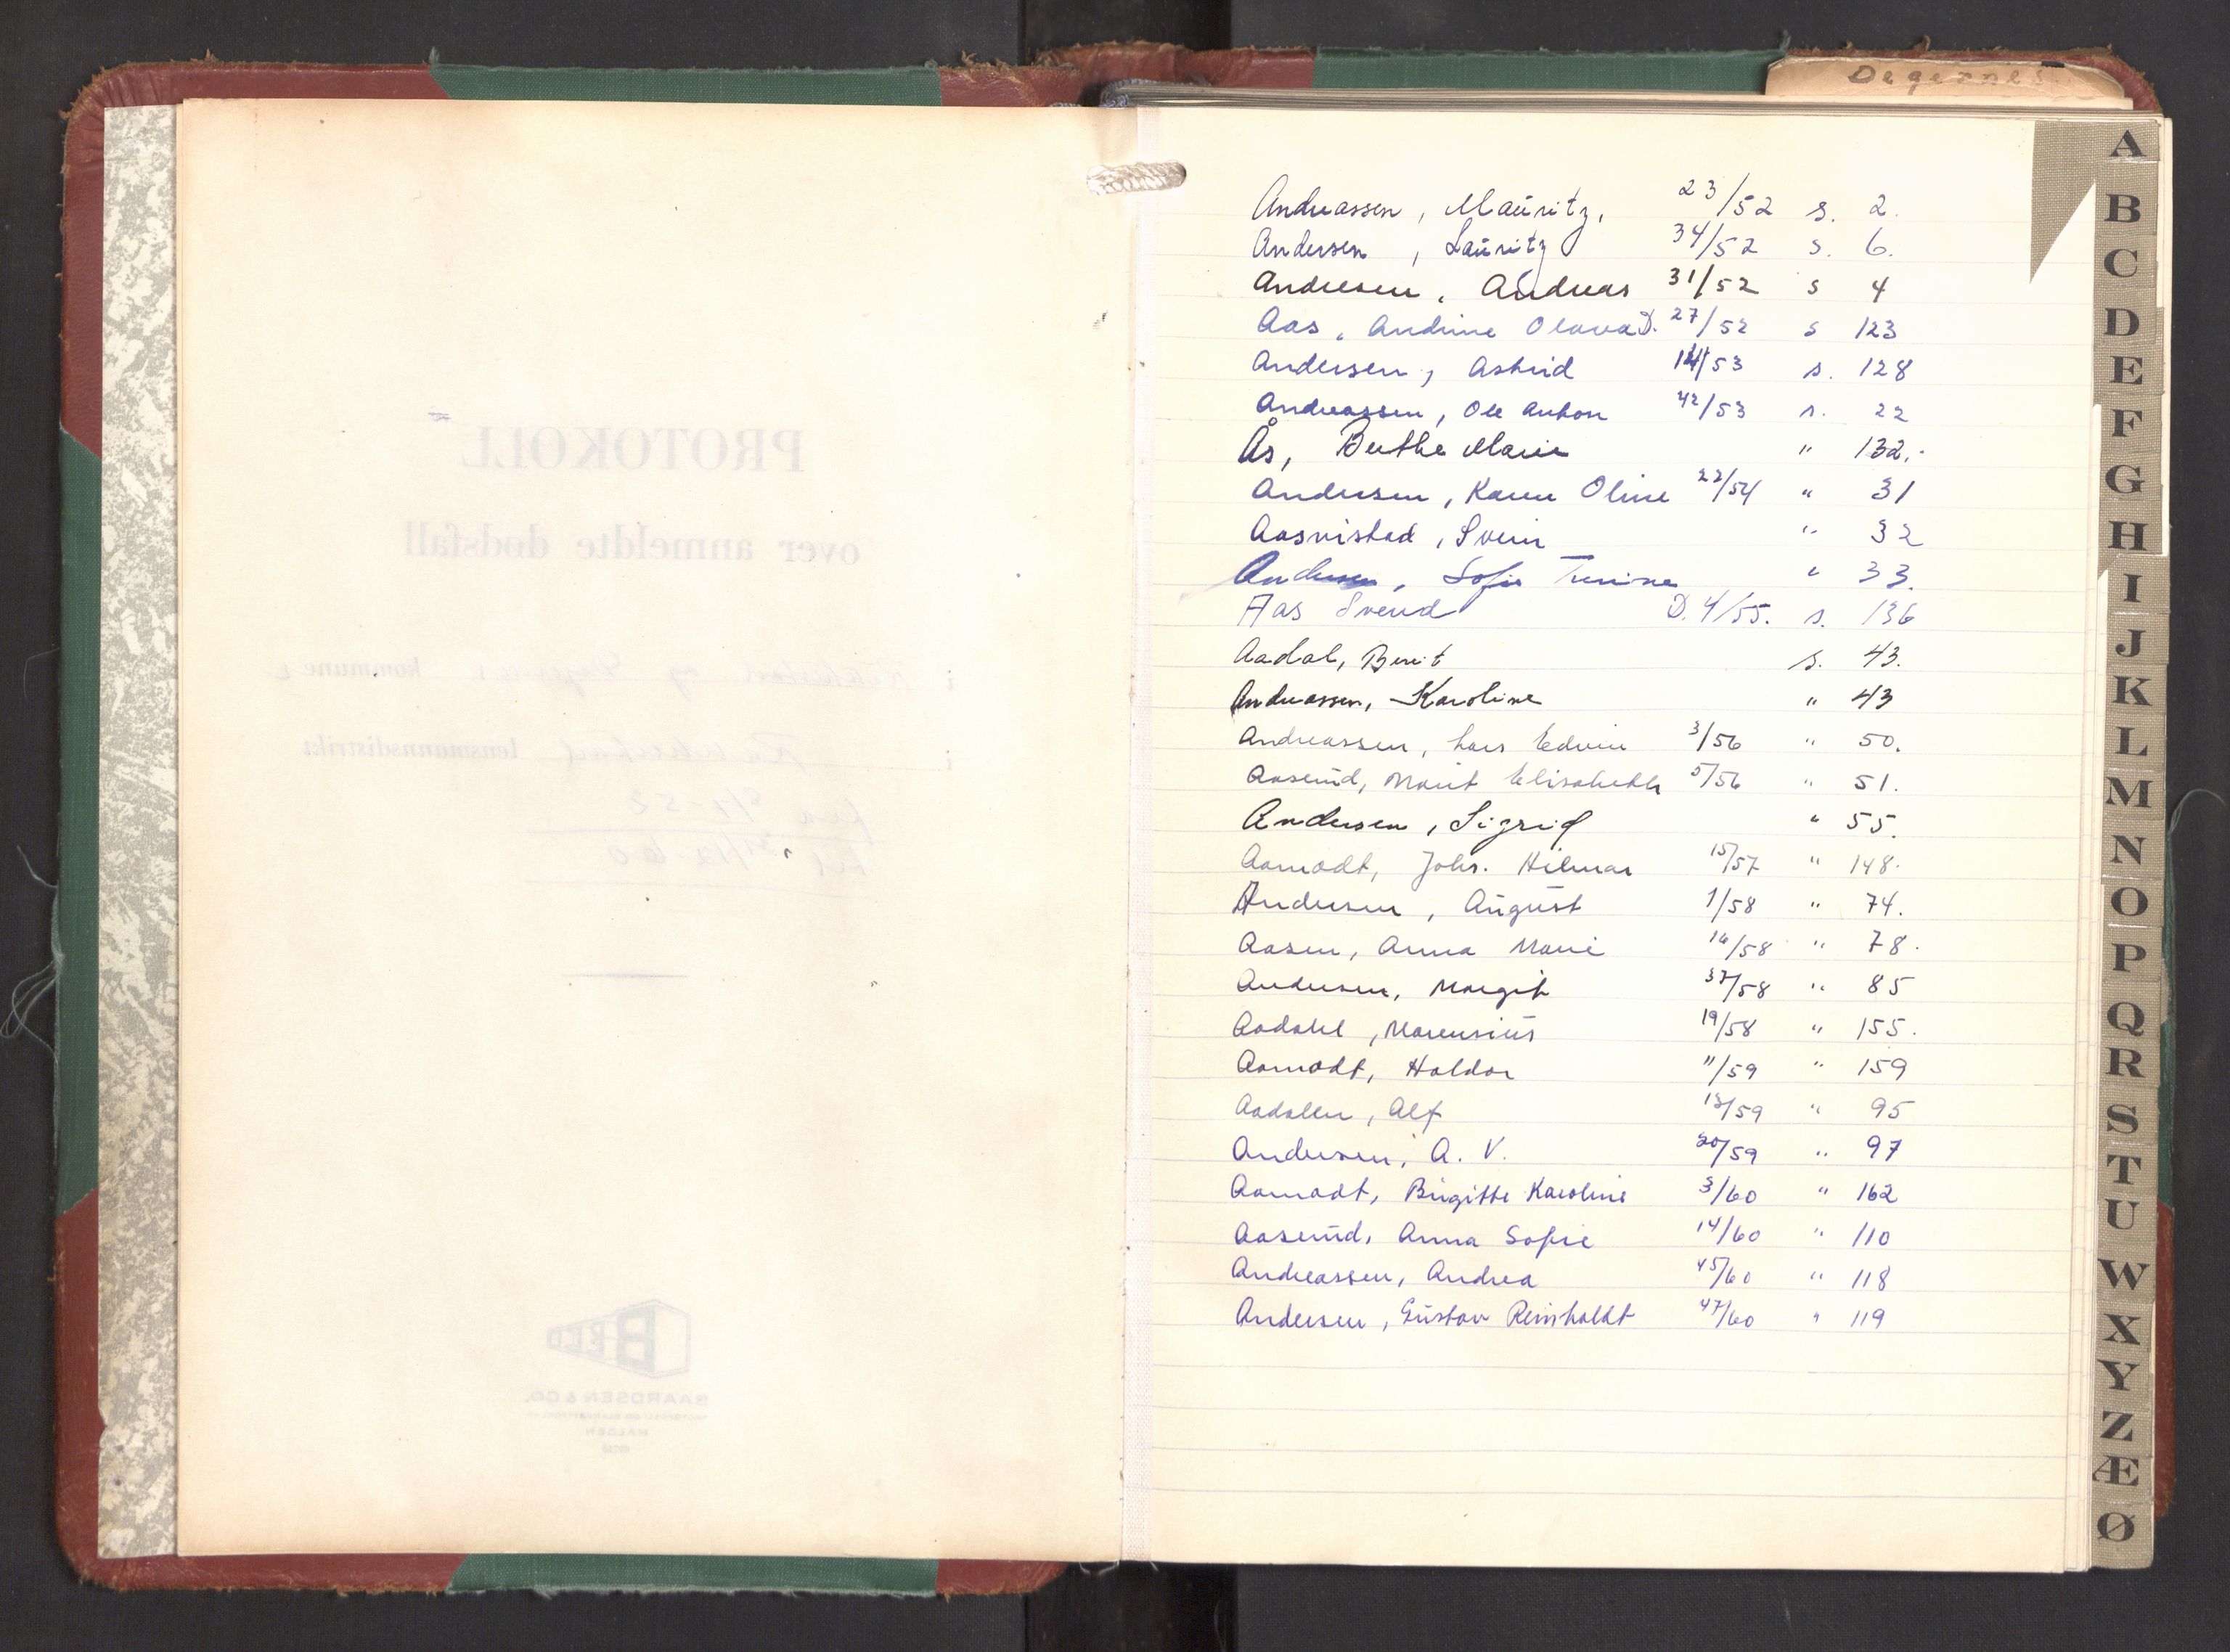 Degernes
PROTOKOLL
over anmeldte dødsfall
i Rakkestad og Degernes kommune r
i Rakkestad lensmannsdistrikt
fra 1/1-52
til 31/12-60
BRECO
BAARDSEN & CO.
HALDEN
Andreassen, Mauritz, 23/52 s. 2.
Andersen, Lauritz 34/52 s. 6.
Andresen, Andreas 31/52 s 4
Aas, Andrine Olava D. 27/52 s 123
Andersen, Astrid 14/53 s. 128
Andreassen, Ole Anton 42/53 s. 22
Ås, Berthe Marie " 132.
Andersen, Karen Oline 22/54 " 31
Aasvistad, Svein " 32
Andersen, Sofie " 33.
Aas Svend D. 4/55. s. 136
Aadal, Berit s. 43.
Andreassen, Karoline " 43
Andreassen, Lars Edvin 3/56 " 50.
Aaserud, Marit Elisabeth 5/56 " 51.
Andersen, Sigrid " 55.
Aamodt, Johs. Hilmar 15/57 " 148.
Andersen, August 1/58 " 74.
Aasen, Anna Marie 16/58 " 78.
Andersen, Margit 37/58 " 85
Aadahl, Marensius 19/58 " 155.
Aamodt, Haldor 11/59 " 159
Aadalen, Alf 13/59 " 95
Andersen, A. V. 20/59 " 97
Aamodt, Birgitte Karoline 3/60 " 162
Aaserud, Anna Sofie 14/60 " 110
Andreassen, Andrea 45/60 " 118
Andersen, Gustav Reinholdt 47/60 " 119
A
B
C
D
E
F
G
H
I
J
K
L
M
N
O
P
Q
R
S
T
U
W
X
Y
Z
Æ
Ø